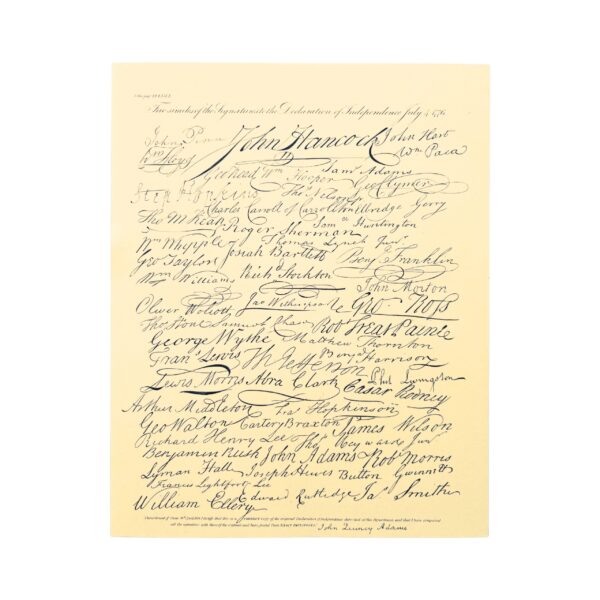 Fac similes of the Signatures to the Declaration of Independence July 4 1776
John Penn John Hancock John Hart
Wm Floyd Wm Paca
Geo Read Wm Hooper Saml Adams
Step Hopkins Thos Nelson jr Geo Clymer
Charles Carroll of Carrollton Elbridge Gerry
Tho M Kean Roger Sherman Saml Huntington
Wm Whipple Thomas Lynch Junr
Geo Taylor Josiah Bartlett Benj Franklin
Wm Williams Richd Stockton
John Morton
Oliver Wolcott Jno Witherspoon Geo Ross
Thos Stone Samuel Chase Robt Treat Paine
George Wythe Matthew Thornton
Frans Lewis Th Jefferson Benj Harrison
Lewis Morris Abra Clark Phil Livingston
Caesar Rodney
Arthur Middleton Fras Hopkinson
Geo Walton Carter Braxton James Wilson
Richard Henry Lee Thos Heyward Junr
Benjamin Rush John Adams Robt Morris
Lyman Hall Joseph Hewes Button Gwinnett
Francis Lightfoot Lee
William Ellery Edward Rutledge Jas Smith
John Quincy Adams